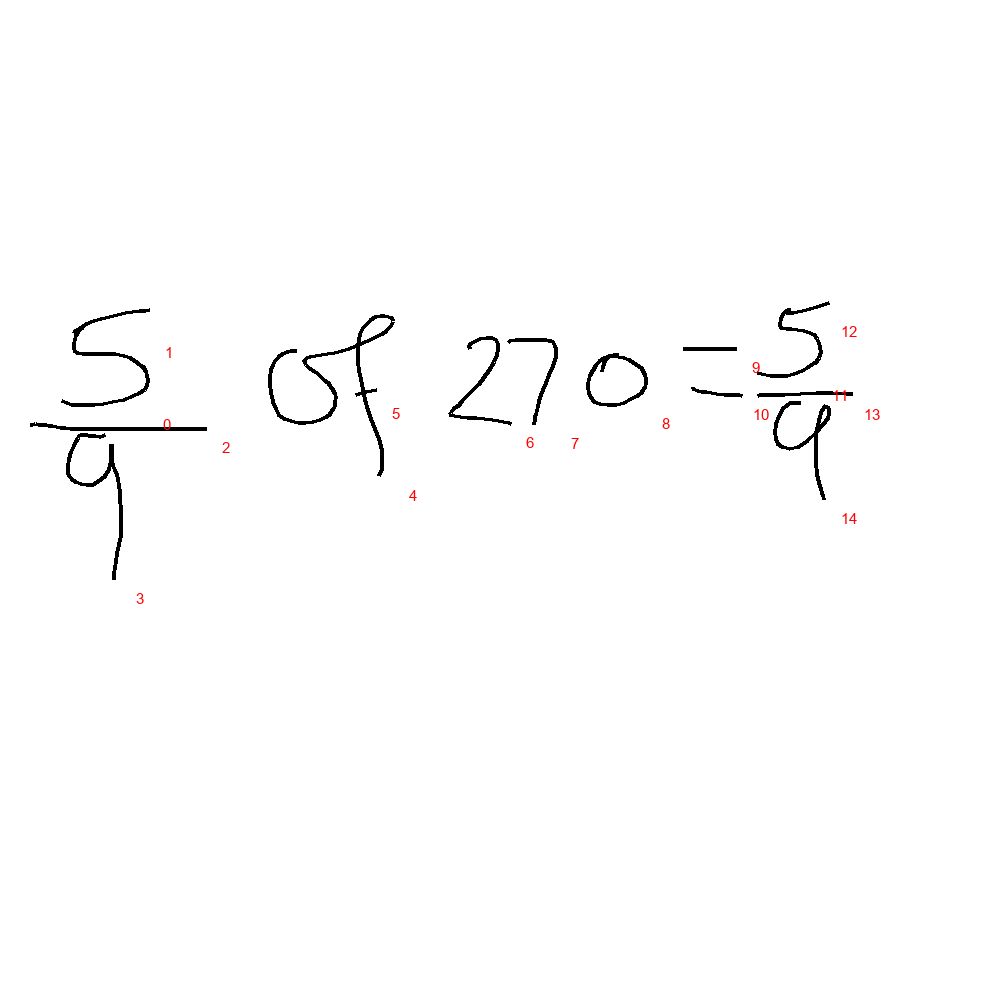 5/9 of 270 = 5/9
1
0
2
3
5
4
6
7
8
9
10
12
11
13
14